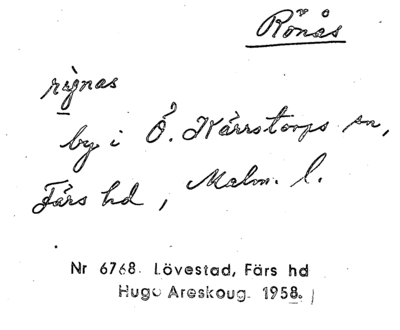 Rönås
rönas
by i Ö. Kärrstorps sn,
Färs hd, Malm. l.
Nr 6768. Lövestad, Färs hd
Hugo Areskoug. 1958.